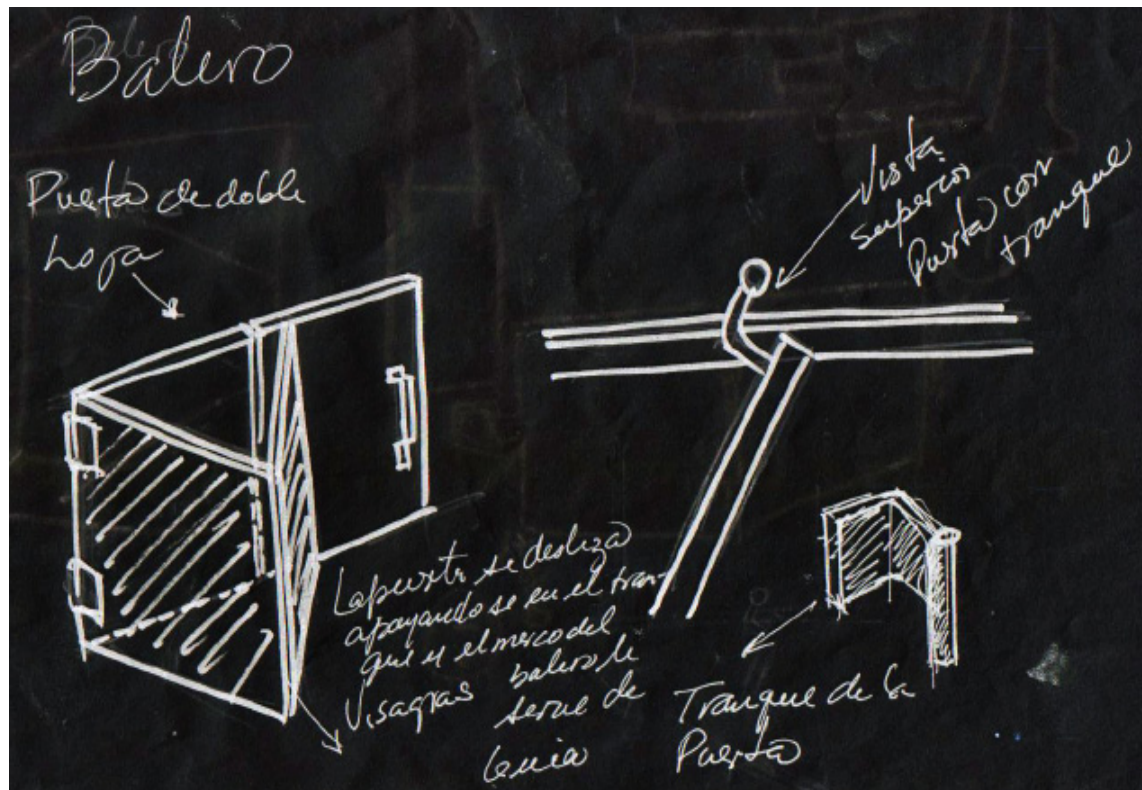 Balero
Puerta de doble
hoja
Vista
superior
Puerta con
tranque
La puerta se desliza
apoyandose en el tran-
que y el marco del
balero le
sirve de
Guia
Visagras
Tranque de la
Puerta